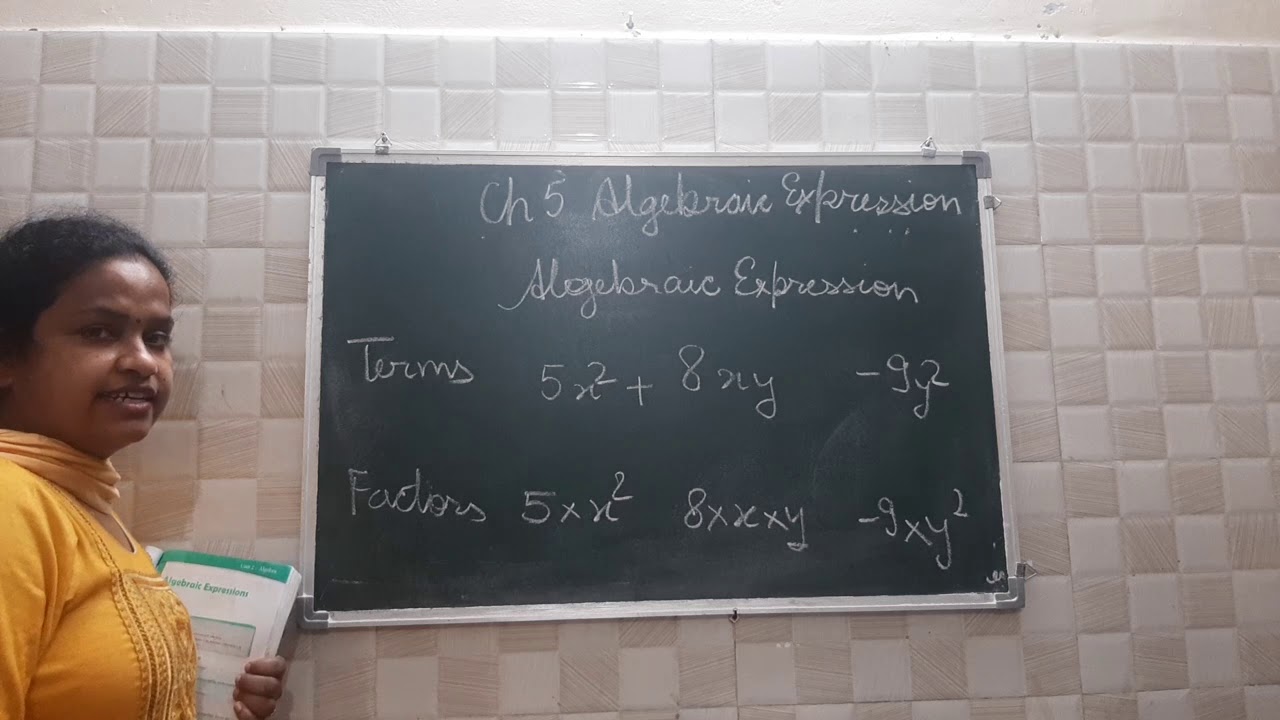 Ch 5 Algebraic Expression
Algebraic Expression
Terms 5x² + 8xy -9y²
Factors 5×x² 8×x×y -9×y²
Algebraic Expressions